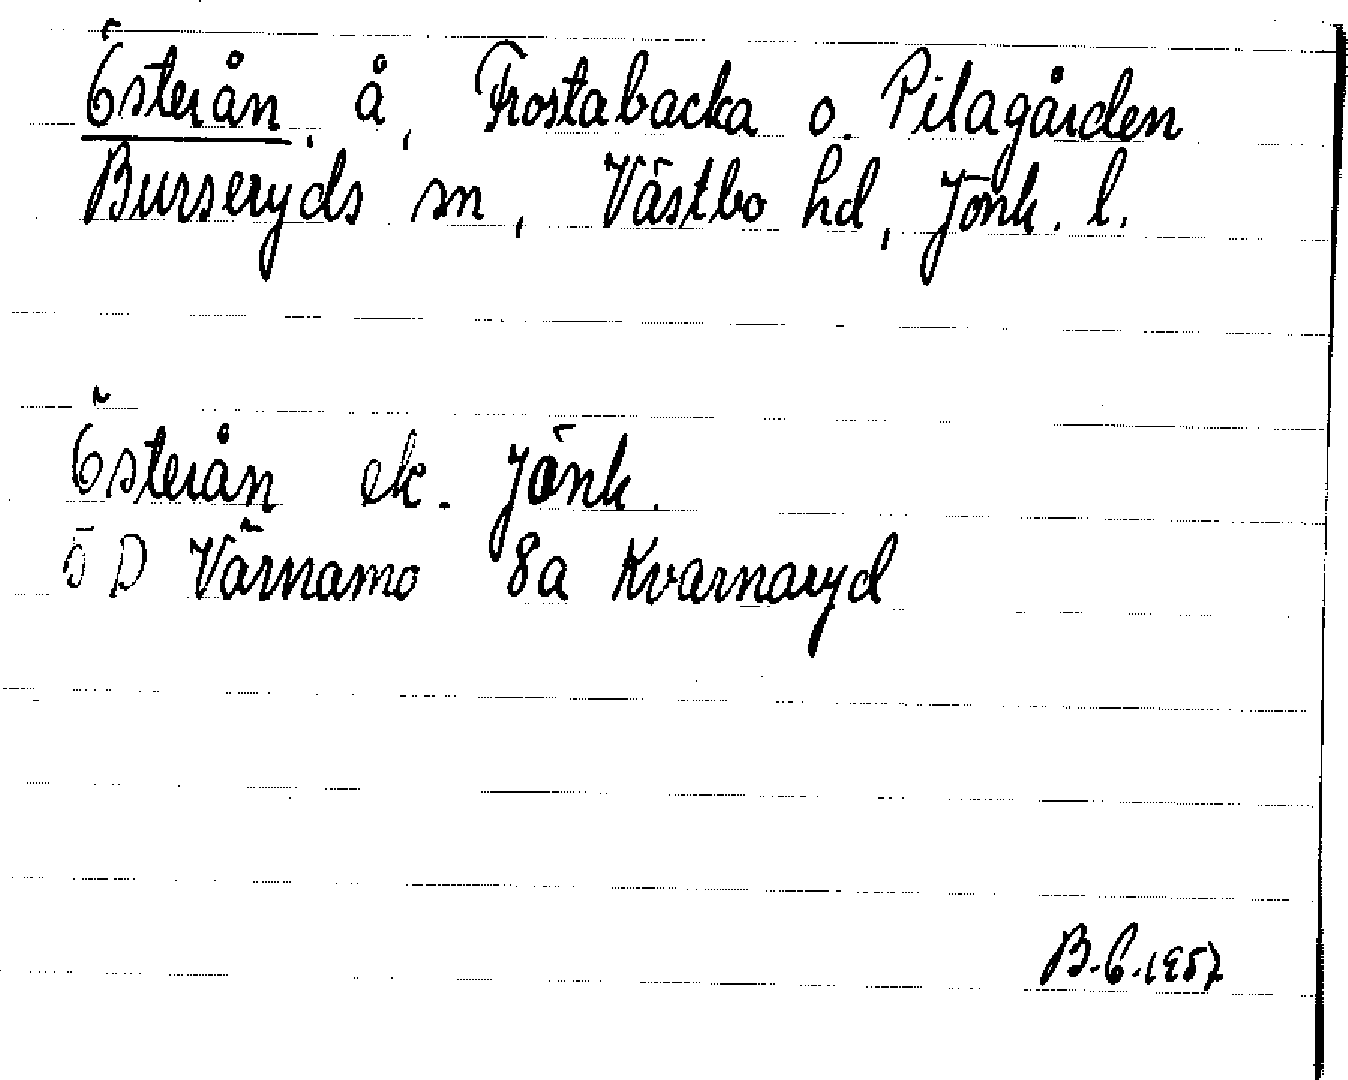 Österån, å, Frostabacka o. Pilagården
Burseryds sn, Västbo hd, Jönk. l.
Österån ek. Jönk.
5 D Värnamo 8a Kvarnaryd
B.C. 1957